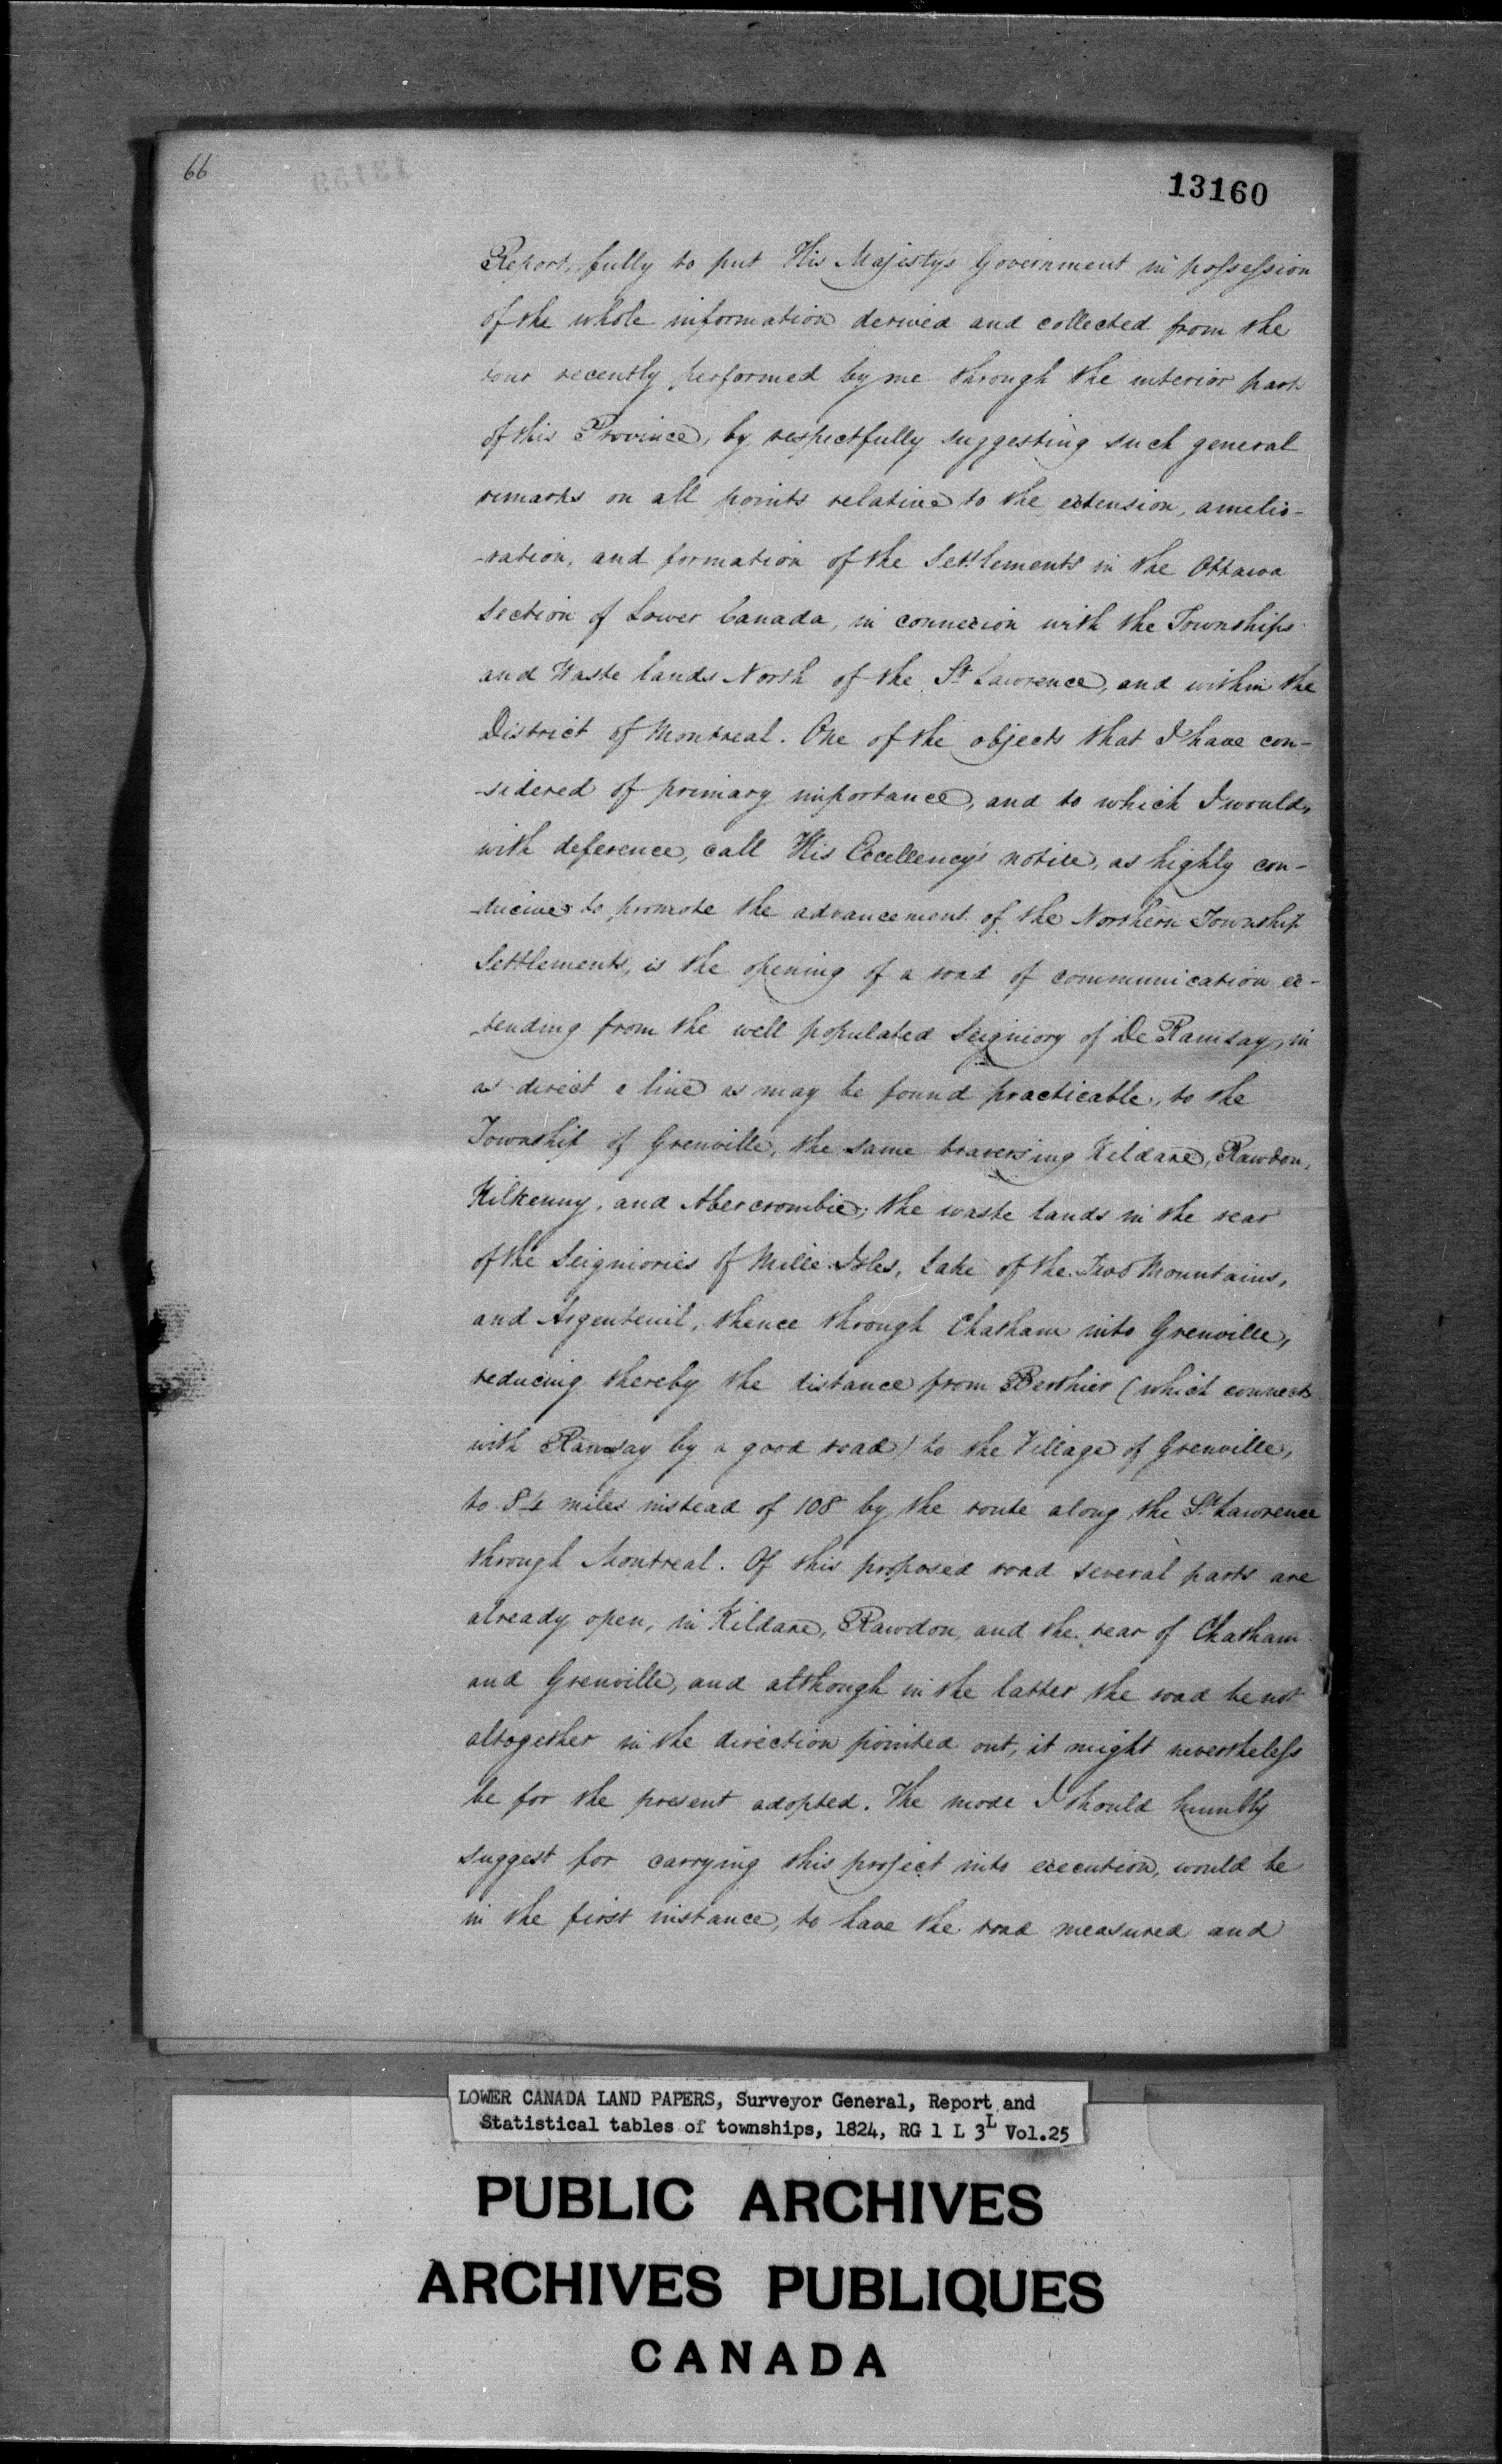 66
13160
Report, fully to put His Majestys Government in possession
of the whole information derived and collected from the
tour recently performed by me through the interior parts
of this Province, by respectfully suggesting such general
remarks on all points relative to the extension, amelio-
-ration, and formation of the Settlements in the Ottawa
Section of Lower Canada, in connexion with the Townships
and Waste lands North of the St Lawrence, and within the
District of Montreal. One of the objects that I have con-
-sidered of primary importance, and to which I would,
with deference, call His Excellency's notice, as highly con-
-ducive to promote the advancement of the Northern Township
Settlements, is the opening of a road of communication ex-
-tending from the well populated Seigniory of De Ramsay, in
as direct a line as may be found practicable, to the
Township of Grenville, the same traversing Kildare, Rawdon,
Kilkenny, and Abercrombie; the waste lands in the rear
of the Seigniories of Mille Isles, Lake of the Two Mountains,
and Argenteuil, thence through Chatham into Grenville,
reducing thereby the distance from Berthier (which connects
with Ramsay by a good road) to the Village of Grenville,
to 84 miles instead of 108 by the route along the St Lawrence
through Montreal. Of this proposed road several parts are
already open, in Kildare, Rawdon, and the rear of Chatham
and Grenville, and although in the latter the road be not
altogether in the direction pointed out, it might nevertheless
be for the present adopted. The mode I should humbly
suggest for carrying this project into execution, would be
in the first instance, to have the road measured and
LOWER CANADA LAND PAPERS, Surveyor General, Report and
Statistical tables of townships, 1824, RG 1 L 3L Vol.25
PUBLIC ARCHIVES
ARCHIVES PUBLIQUES
CANADA